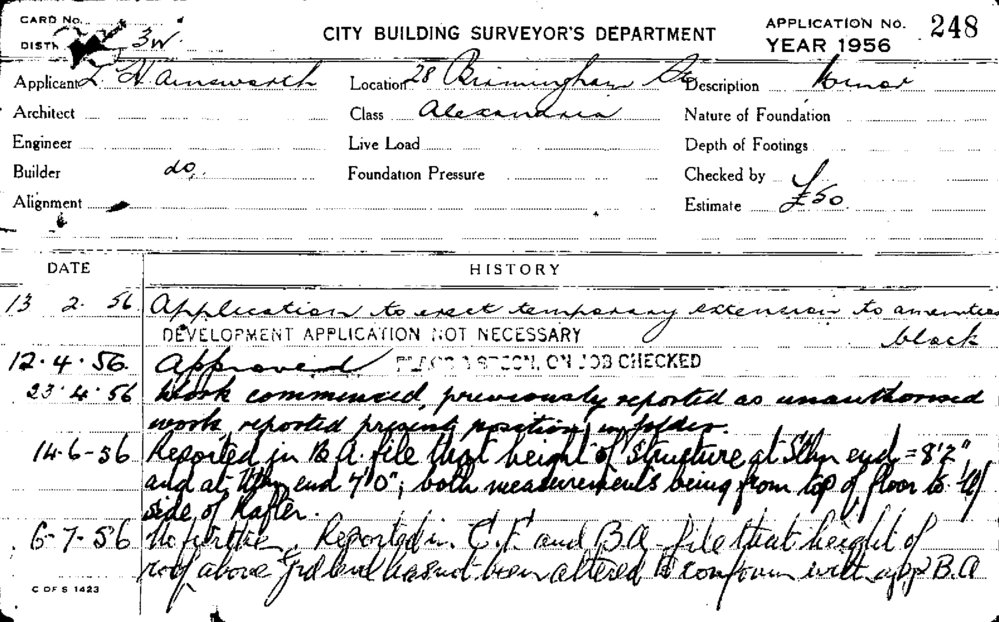 CARD No.
DISTN 3W.
CITY BUILDING SURVEYOR'S DEPARTMENT
APPLICATION No. 248
YEAR 1956
Applicant L H Ainsworth
Location 28 Birmingham St
Description Minor
Architect
Class Alexandria
Nature of Foundation
Engineer
Live Load
Depth of Footings
Builder do.
Foundation Pressure
Checked by
Alignment
Estimate £50
DATE
HISTORY
13 2. 56 Application to erect temporary extension to amenities
block
DEVELOPMENT APPLICATION NOT NECESSARY
12.4.56. Approved ON JOB CHECKED
23.4.56 Work commenced, previously reported as unauthorised
work reported present position in folder.
14-6-56 Reported in B.A. file that height of structure at Sthn end = 8'2"
and at Nthn end 7'0"; both measurements being from top of floor to U/
side of Rafter.
6-7-56 No further. Reported in C.F. and B.A. file that height of
roof above grd level has not been altered to conform with app B.A
C OF S 1423